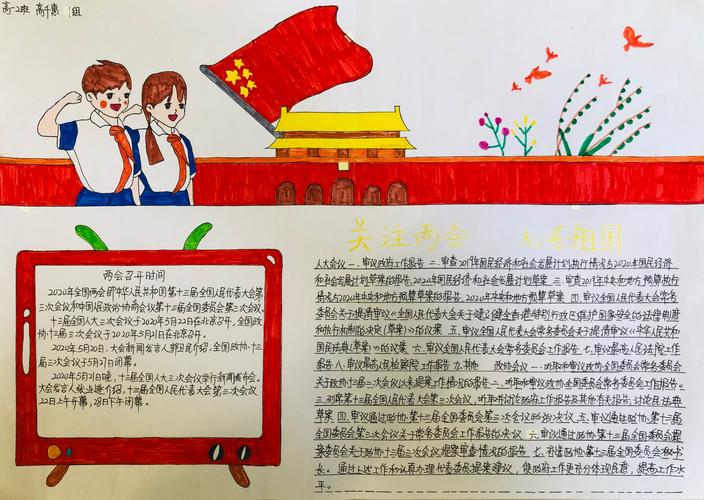 高一2班 高千惠 组
关注两会 祖国
两会召开时间
2020年全国两会即中华人民共和国第十三届全国人民代表大会第
三次会议和中国人民政治协商会议第十三届全国委员会第三次会议。
十三届全国人大三次会议于2020年5月22日在北京召开，全国政
协十三届三次会议于2020年5月21日在北京召开。
2020年5月20日，大会新闻发言人郭卫民介绍，全国政协十三
届三次会议于5月21日开幕。
2020年5月21日晚，十三届全国人大三次会议举行新闻发布会。
大会发言人张业遂介绍，十三届全国人民代表大会第三次会议
22日上午开幕，28日下午闭幕。
人大会议 一、审议政府工作报告 二、审查2019年国民经济和社会发展计划执行情况与2020年国民经济
和社会发展计划草案的报告、2020年国民经济和社会发展计划草案 三、审查2019年中央和地方预算执行
情况与2020年中央和地方预算草案的报告、2020年中央和地方预算草案 四、审议全国人民代表大会常务
委员会关于提请审议《全国人民代表大会关于建立健全香港特别行政区维护国家安全的法律制度
和执行机制的决定（草案）》的议案 五、审议全国人民代表大会常务委员会关于提请审议《中华人民共
和国民法典（草案）》的议案 六、审议全国人民代表大会常务委员会工作报告 七、审议最高人民法院工作
报告 八、审议最高人民检察院工作报告 九、其他 政协会议 一、听取和审议政协全国委员会常务委员会
工作报告 二、听取和审议政协全国委员会常务委员会
关于政协十三届二次会议以来提案工作情况的报告
三、列席第十三届全国人民代表大会第三次会议，听取并讨论政府工作报告及其他有关报告，讨论民法典
草案 四、审议通过政协第十三届全国委员会第三次会议政治决议 五、审议通过政协第十三届
全国委员会第三次会议关于常务委员会工作报告的决议 六、审议通过政协第十三届全国委员会提案
委员会关于政协十三届三次会议提案审查情况的报告